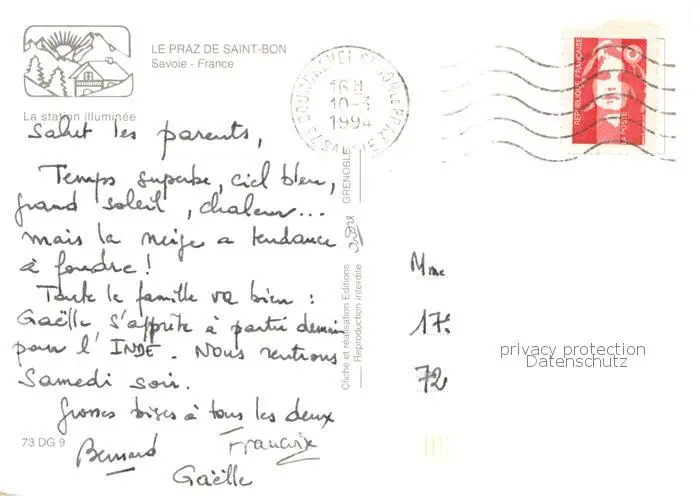 LE PRAZ DE SAINT-BON
Savoie - France
La station illuminée
Salut les parents,
Temps superbe, ciel bleu,
grand soleil, chaleur...
mais la neige a tendance
à fondre !
Toute la famille va bien :
Gaëlle s'apprête à partir demain
pour l'INDE. Nous rentrons
Samedi soir.
Grosses bises à tous les deux
Bernard Francoise
Gaëlle
73 DG 9
16H
10-3
1994
GRENOBLE
Cliché et réalisation Editions
Reproduction interdite
REPUBLIQUE FRANÇAISE
LA POSTE
Mme
17
72
privacy protection
Datenschutz